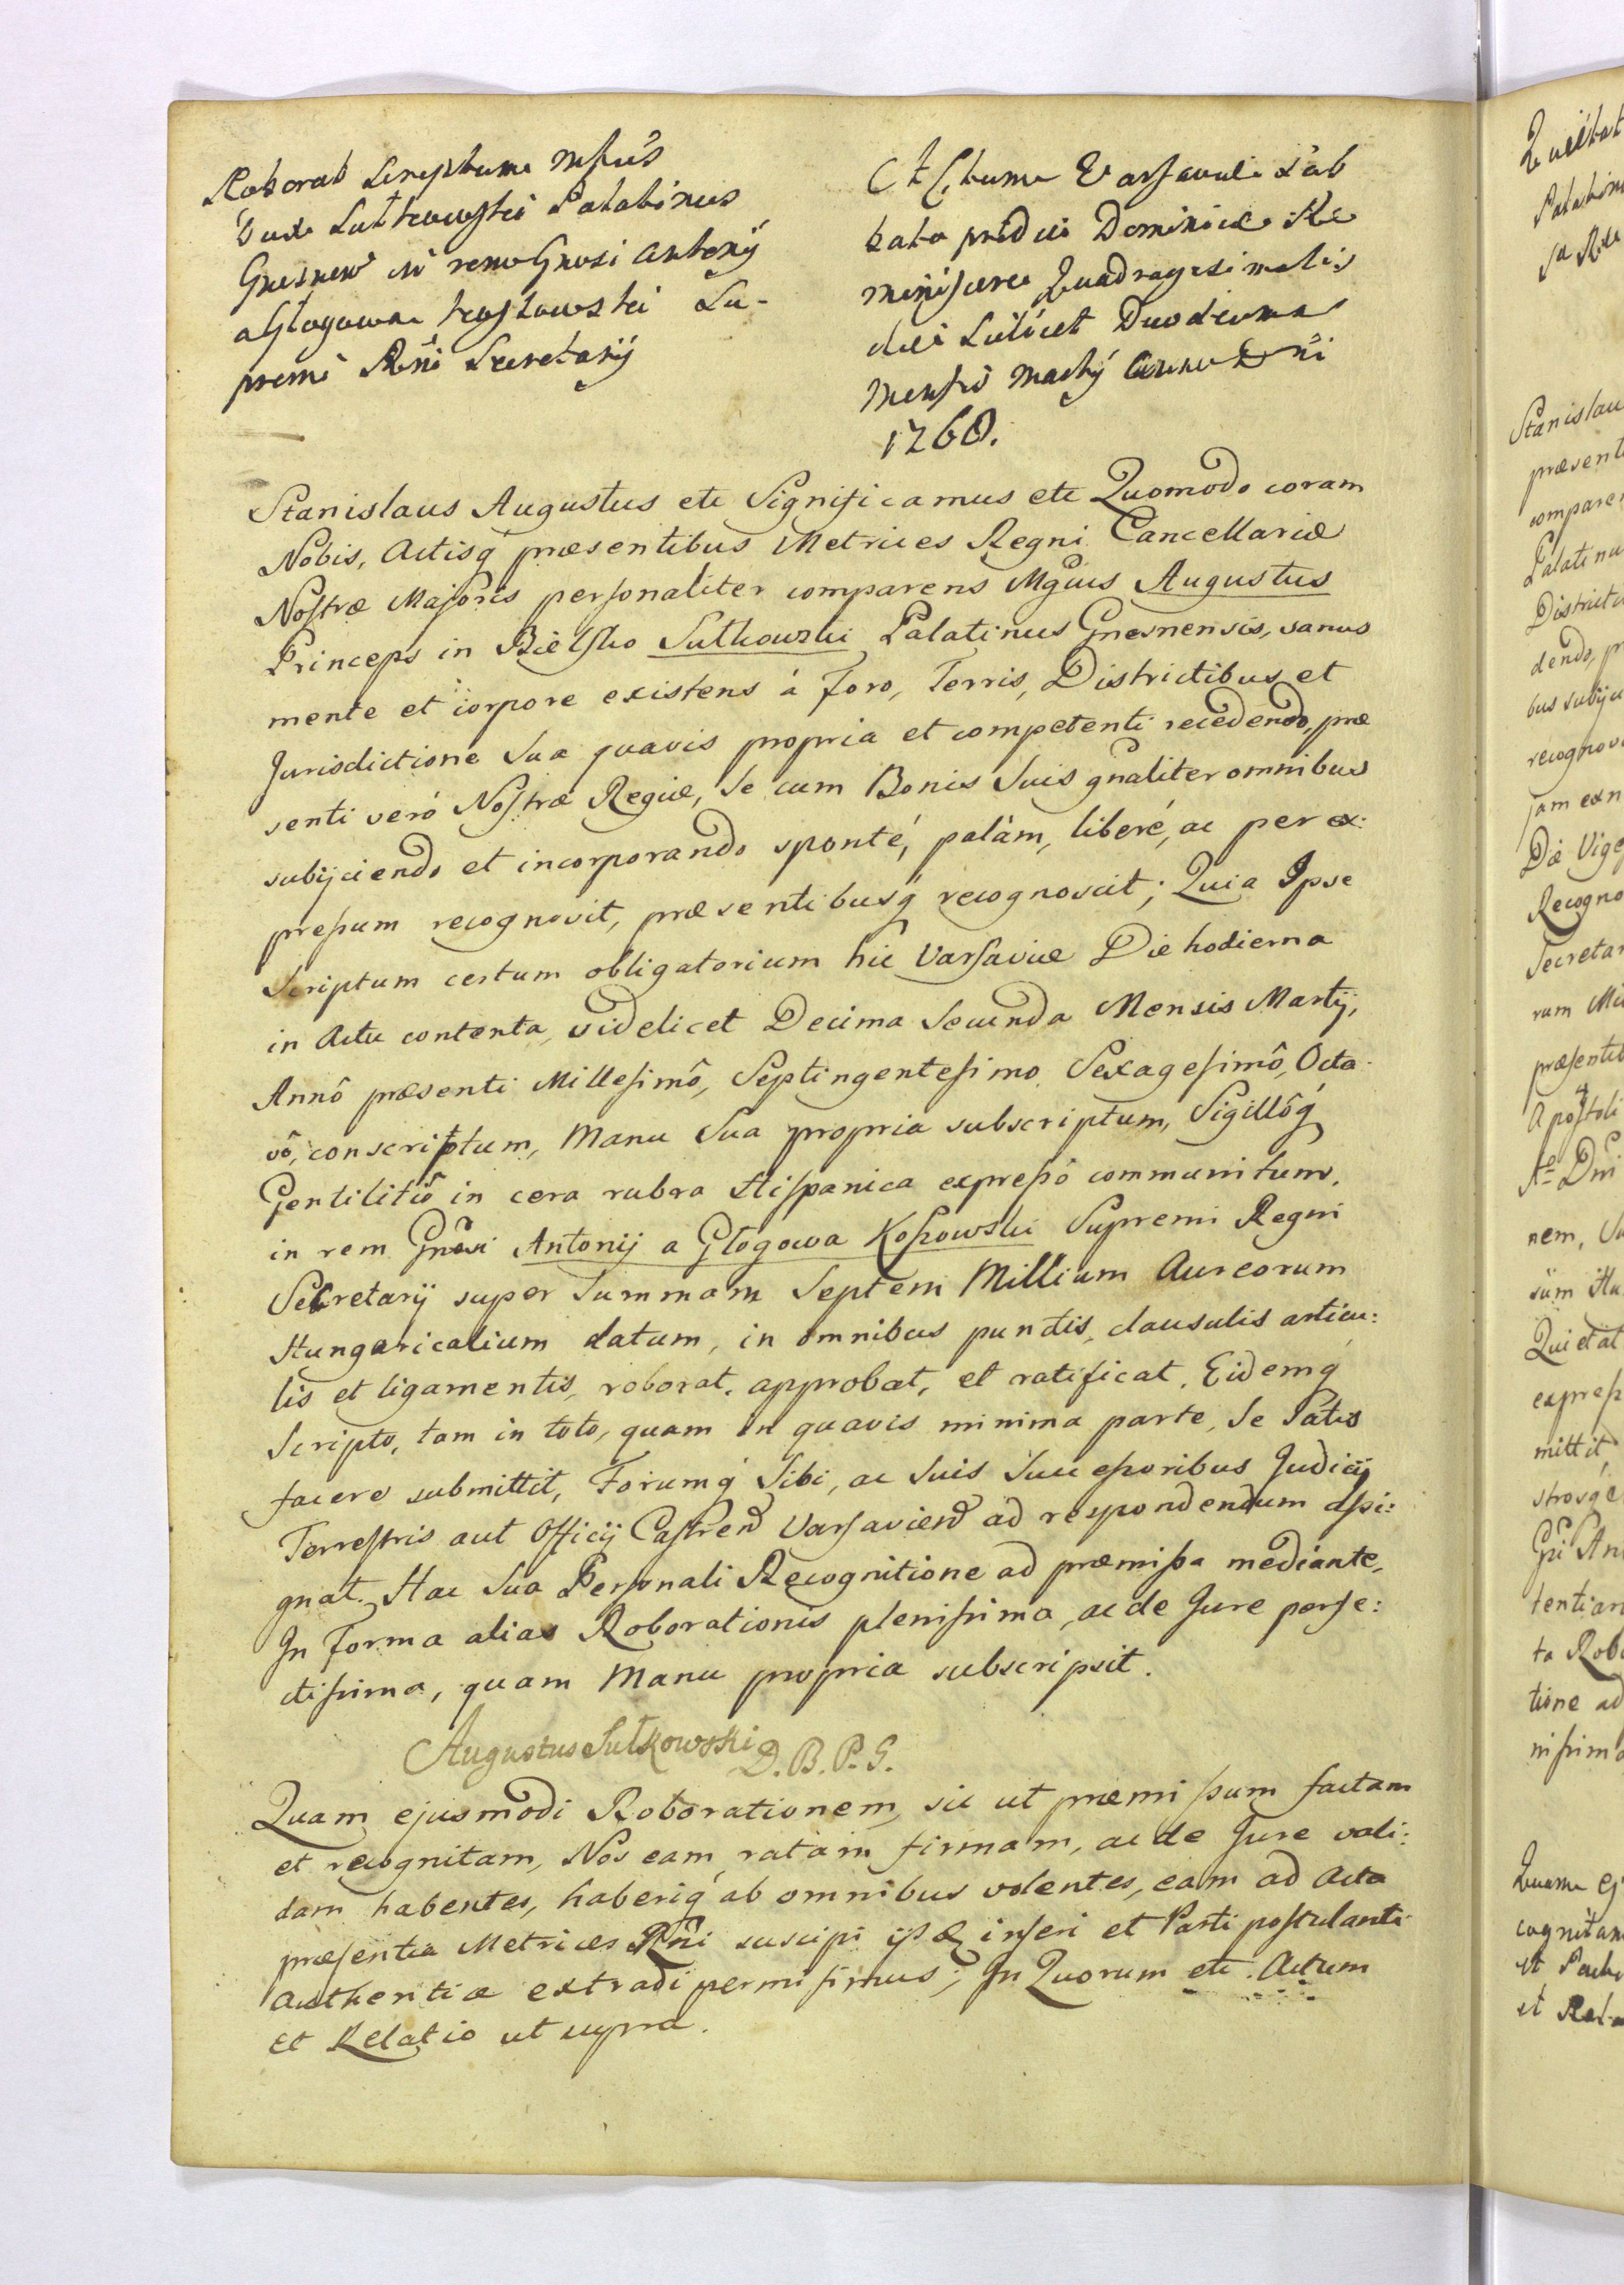 Roborat Scriptum Mgfcus
Dux Sułkowski Palatinus
Gnesnen in rem Gnosi Antonij
a Głogowa Kossowski Su-
premi Rni Secretarij
Actum Varsaviæ Sab
bato pridie Dominicæ Re
miniscere Quadragesimalis
die scilicet Duodecima
Mensis Martij Anno Dni
1768.
Stanislaus Augustus etc Significamus etc Quomodo coram
Nobis, Actisq præsentibus Metrices Regni Cancellariæ
Nostræ Majoris personaliter comparens Mgcus Augustus
Princeps in Bielsko Sułkowski Palatinus Gnesnensis, sanus
mente et corpore existens á Foro, Terris, Districtibus et
Jurisdictione Sua quavis propria et competenti recedendo, præ
senti veró Nostræ Regiæ, Se cum Bonis Suis gnaliter omnibus
subijciendo et incorporando sponté, palàm, liberé, ac per ex:
pressum recognovit, præsentibusq recognoscit; Quia Ipse
Scriptum certum obligatorium hic Varsaviæ Die hodierna
in Actu contenta, videlicet Decima Secunda Mensis Martij,
Annô præsenti Millesimô, Septingentesimo Sexagesimô, Octa
vô, conscriptum, Manu Sua propria subscriptum, Sigillôq
Gentilitiô in cera rubra Hispanica expressô communitum,
in rem Gnosi Antonij a Głogowa Kossowski Supremi Regni
Secretarij super Summam Septem Millium Aureorum
Hungaricalium datum, in omnibus punctis, clausulis articu:
lis et ligamentis, roborat, approbat, et ratificat. Eidemq
Scripto, tam in toto, quam in quavis minima parte, Se Satis
facere submittit, Forumq Sibi, ac Suis Successoribus Judicij
Terrestris aut Officij Castren Varsavien ad respondendum assi:
gnat. Hac Sua Personali Recognitione ad præmissa mediante,
In Forma alias Roborationis plenissima, ac de Jure perfe:
ctissima, quam Manu propria subscripsit.
Augustus Sułkowski D. B. P. G.
Quam ejusmodi Roborationem, sic ut præmissum factam
et recognitam, Nos eam, ratam firmam, ac de Jure vali:
dam habentes, haberiq ab omnibus volentes, eam ad Acta
præsentia Metrices Rni suscipi ijsq inseri et Parti postulanti
authenticæ extradi permisimus; In Quorum etc. Actum
et Relatio ut supra.
Quietat
Palatinu
Stanislau
præsenti
comparen
Palatinu
Districtu
dendo, pr
bus subijci
recognovi
jam exn
Die Vige
Recogno
Secretar
rum Mi
præsentib
Apostoli
Ao Dni
nem, Va
Quietat
express
mittit,
tentiam
ta Robo
tione ad
nissima
Quam ej
cognitam
et Relat